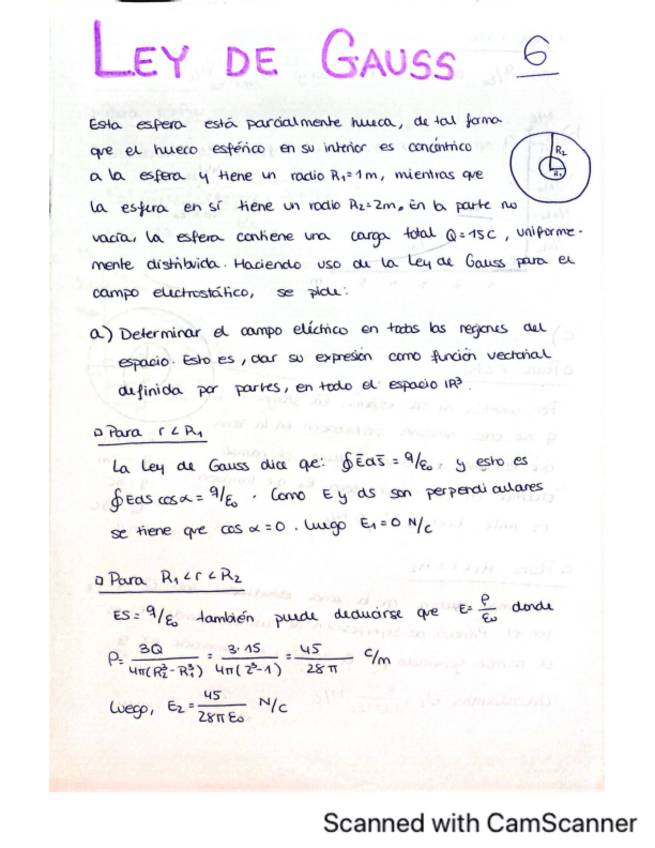 LEY DE GAUSS 6
Esta esfera está parcialmente hueca, de tal forma
que el hueco esférico en su interior es concéntrico
a la esfera y tiene un radio R₁=1m, mientras que
la esfera en sí tiene un radio R₂=2m. En la parte no
vacía, la esfera contiene una carga total Q=15C, uniforme-
mente distribuida. Haciendo uso de la Ley de Gauss para el
campo electrostático, se pide:
R₂
R₁
a) Determinar el campo eléctrico en todas las regiones del
espacio. Esto es, dar su expresión como función vectorial
definida por partes, en todo el espacio ℝ³.
▫ Para r < R₁
La Ley de Gauss dice que: ∮E̅dS̅ = q/ε₀, y esto es
∮Eds cosα = q/ε₀. Como E y ds son perpendiculares
se tiene que cos α = 0. Luego E₁=0 N/C
▫ Para R₁ < r < R₂
ES = q/ε₀ también puede deducirse que E = ρ/ε₀ donde
ρ = 3Q/4π(R₂³-R₁³) = 3·15/4π(2³-1) = 45/28π C/m
Luego, E₂ = 45/28πε₀ N/C
Scanned with CamScanner